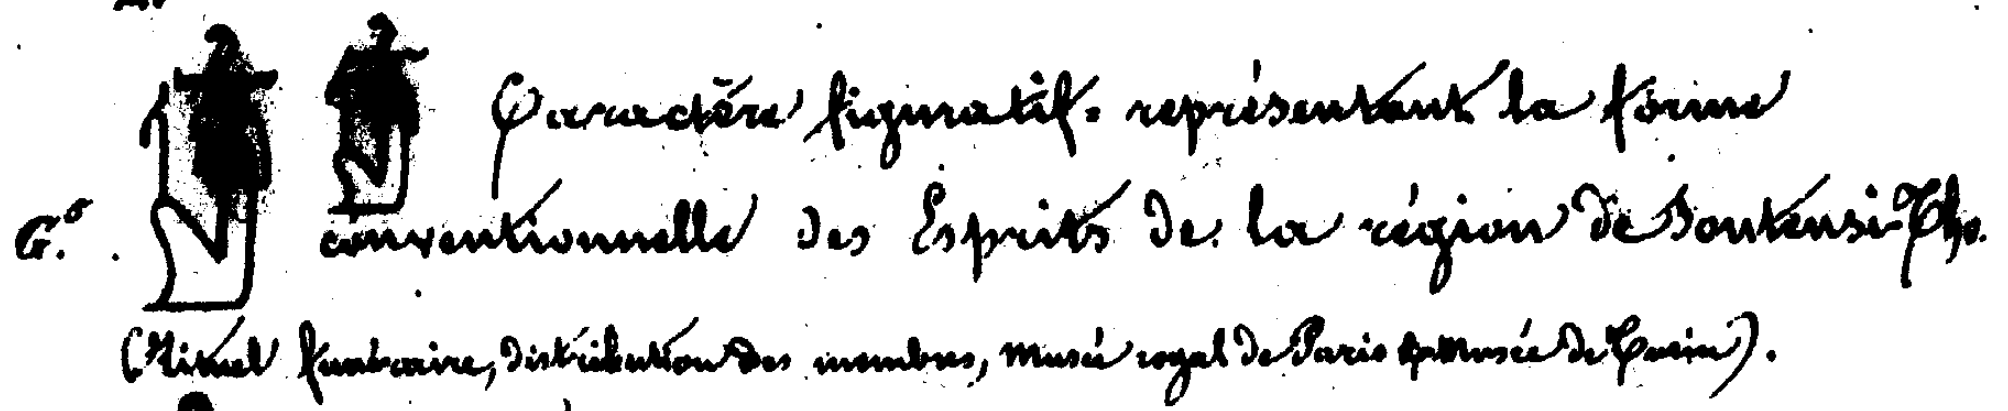 Caractère figuratif. représentant la forme
G.º conventionnelle des Esprits de la région de Sontensi-Tho.
(Rituel funéraire, distribution des membres, Musée royal de Paris & Musée de Turin).